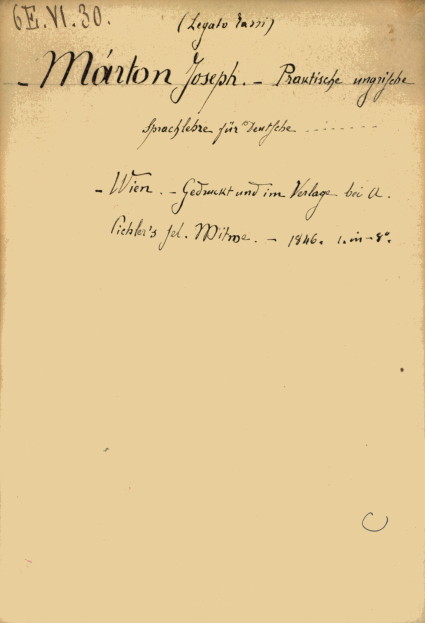 6E.VI.30.
(Legato Tassi)
- Márton Joseph. - Praktische ungrische
Sprachlehre für Deutsche ........
- Wien. - Gedruckt und im Verlage bei A.
Pichler's sel. Witwe. - 1846. 1. in-8º.